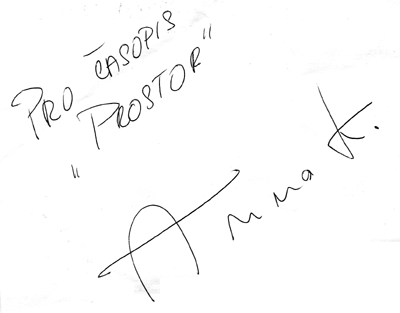 PRO ČASOPIS
"PROSTOR"
Anna K.